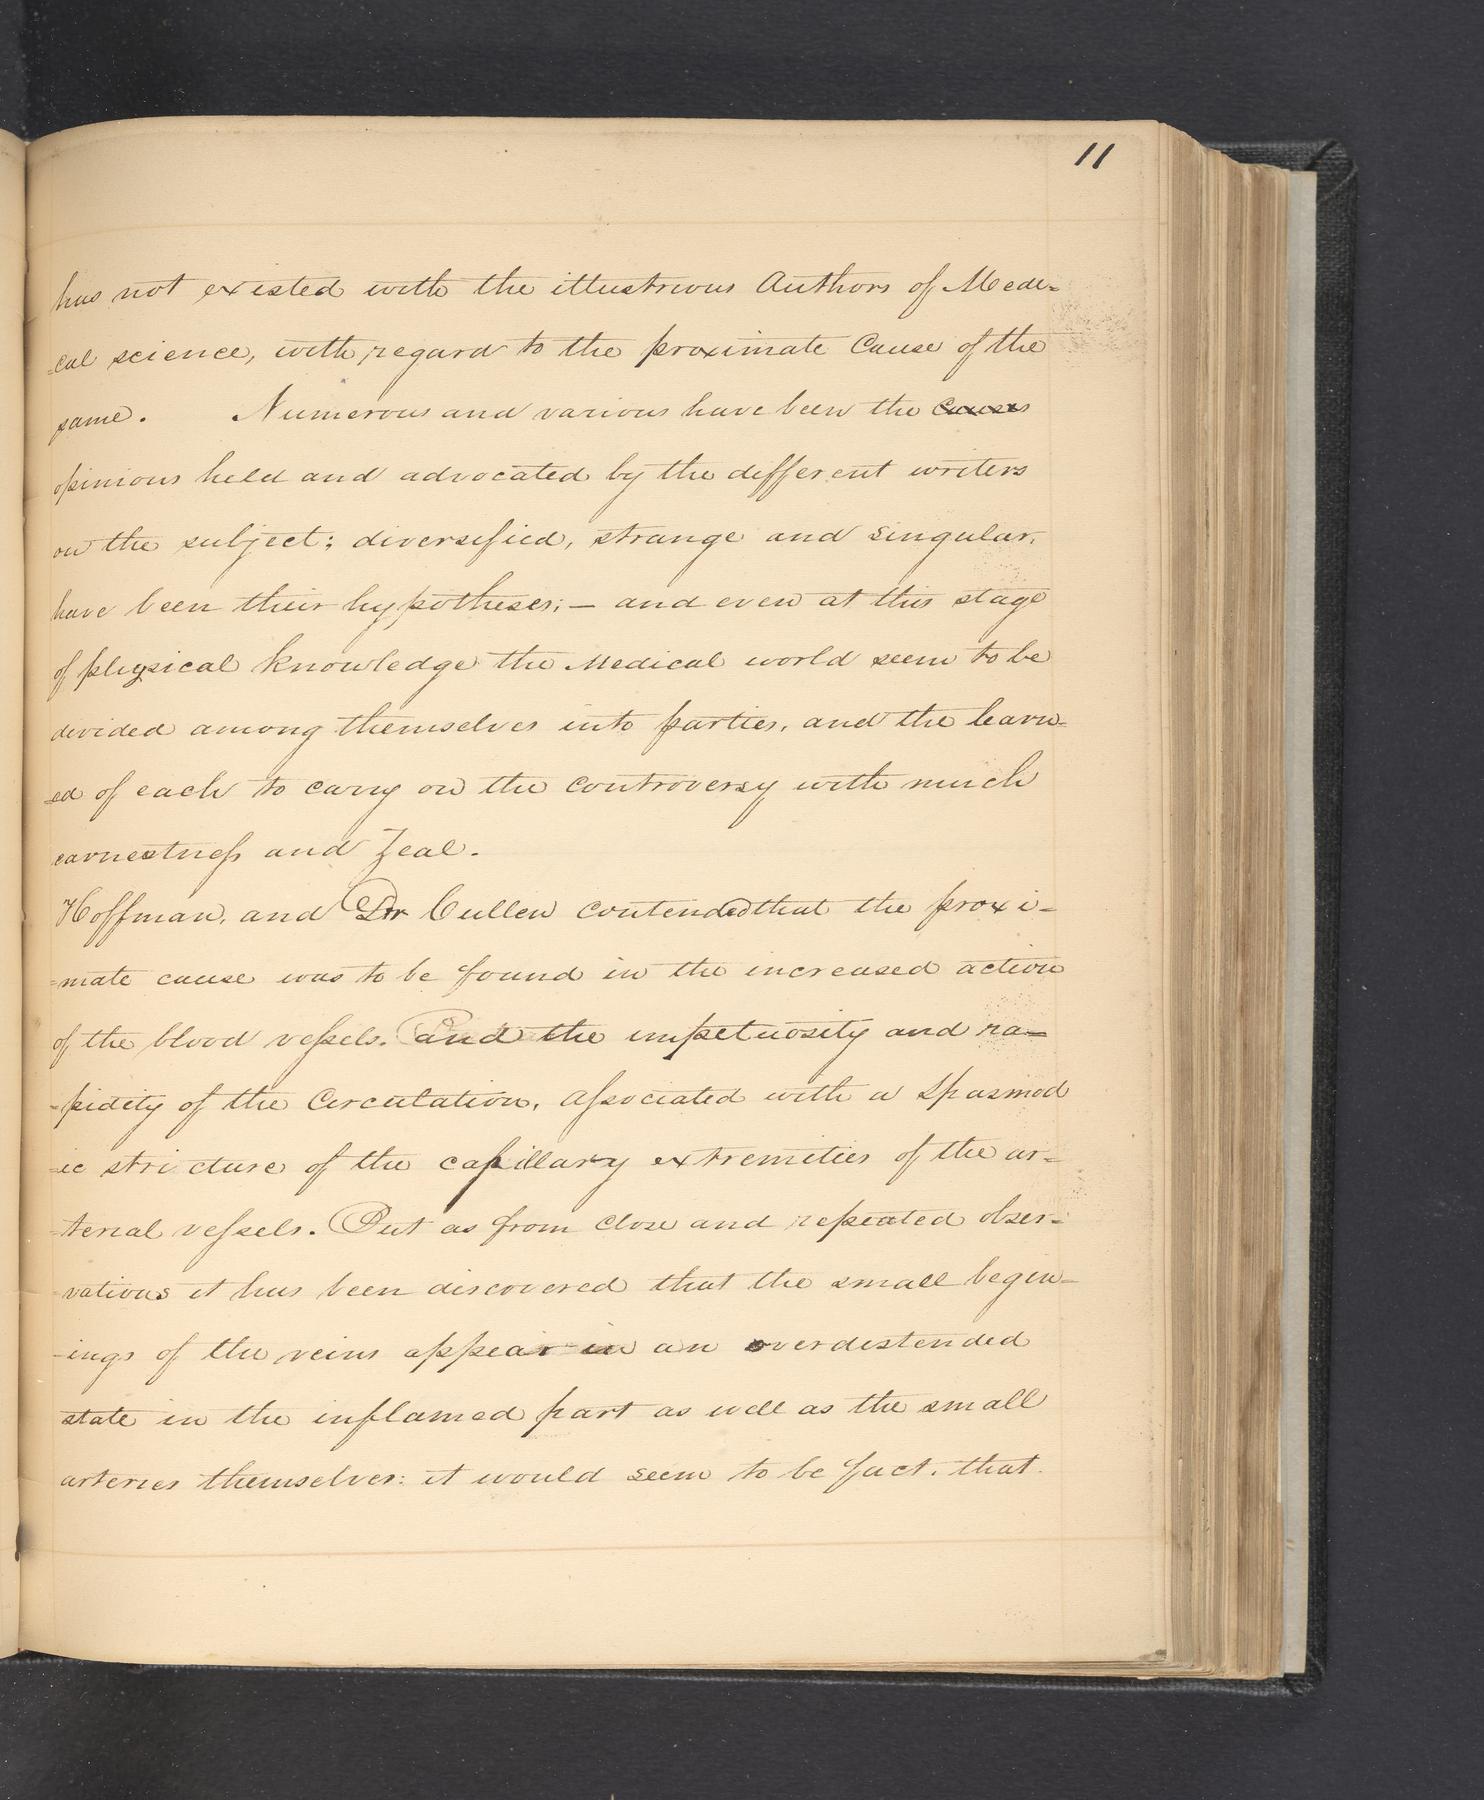 11
has not existed with the illustrious Authors of Medi-
-cal science, with regard to the proximate Cause of the
same. Numerous and various have been the causes
opinions held and advocated by the different writers
on the subject; diversified, strange and singular,
have been their hypotheses; — and even at this stage
of physical knowledge the Medical world seem to be
divided among themselves into parties, and the learn-
-ed of each to carry on the controversy with much
earnestness and Zeal.
Hoffman, and Dr Cullen contended that the proxi-
-mate cause was to be found in the increased action
of the blood vessels. and the impetuosity and ra-
-pidity of the Circulation, associated with a Spasmod
-ic stricture of the capillary extremities of the ar-
-terial vessels. But as from close and repeated obser-
-vations it has been discovered that the small begin-
-ings of the veins appear in an overdistended
state in the inflamed part as well as the small
arteries themselves: it would seem to be fact, that